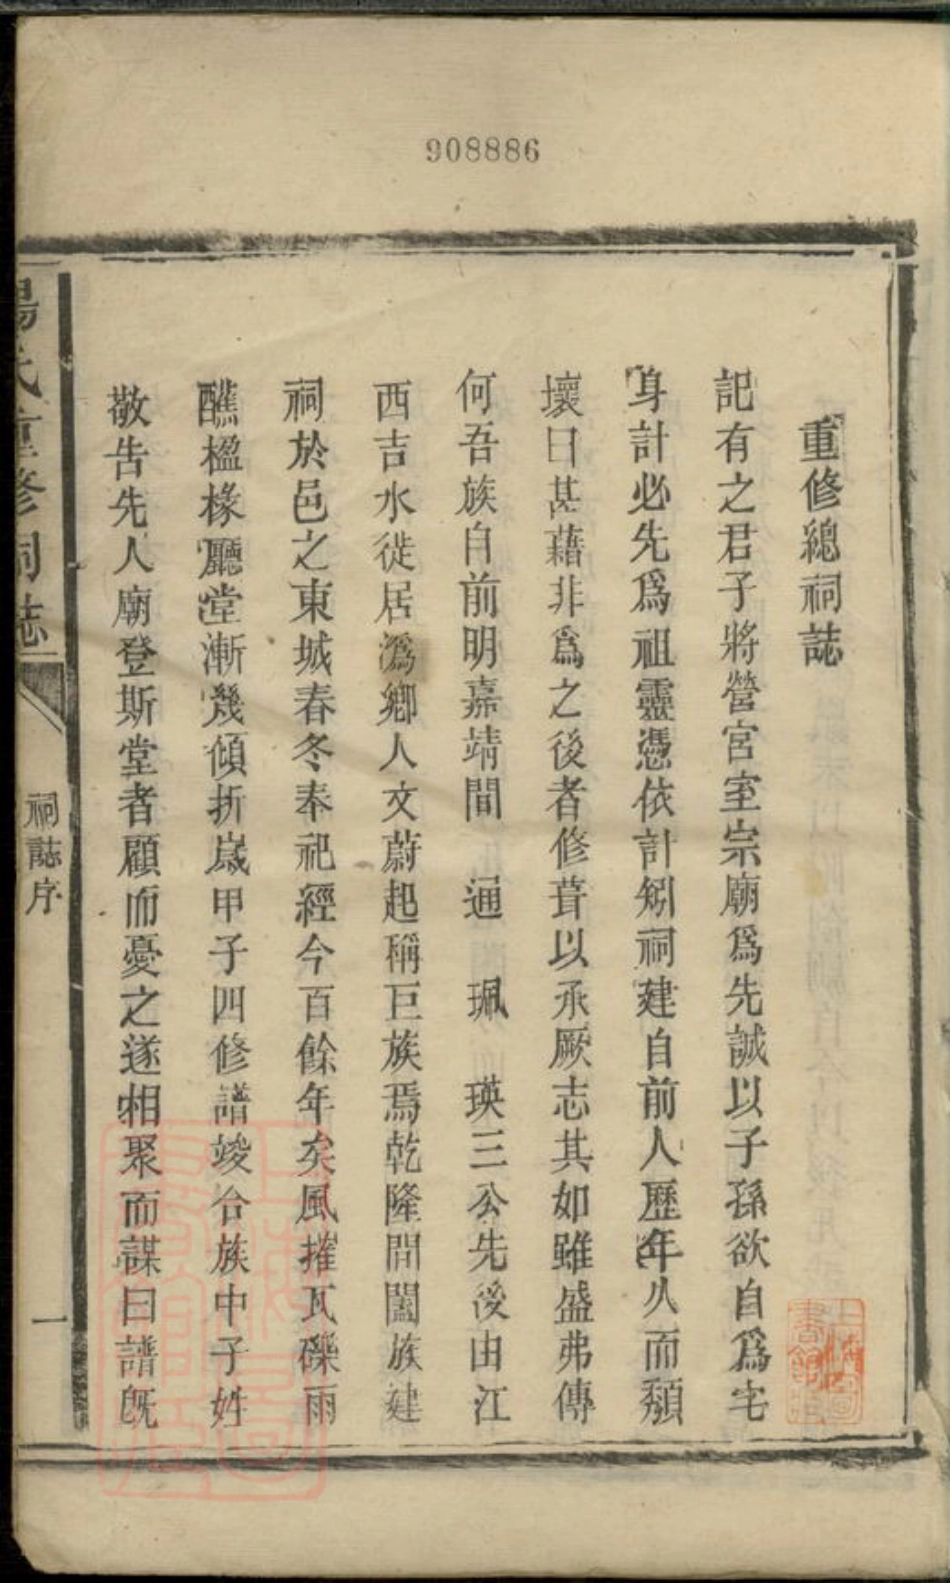 908886
重修總祠誌
記有之君子將營宮室宗廟爲先誠以子孫欲自爲宅
身計必先爲祖靈憑依計矧祠建自前人歷年久而頽
壞日甚藉非爲之後者修葺以承厥志其如雖盛弗傳
何吾族自前明嘉靖間 通 珮 瑛三公先後由江
西吉水徙居潙鄉人文蔚起稱巨族焉乾隆間闔族建
祠於邑之東城春冬奉祀經今百餘年矣風摧瓦礫雨
醮楹椽廳堂漸幾傾折歲甲子四修譜竣合族中子姓
敬告先人廟登斯堂者顧而憂之遂相聚而謀曰譜既
氏重修祠誌
祠誌序
一